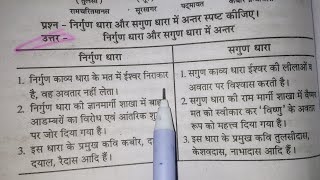 (तुलसी)
रामचरितमानस सूरसागर पद्मावत
प्रश्न - निर्गुण धारा और सगुण धारा में अन्तर स्पष्ट कीजिए।
उत्तर - निर्गुण धारा और सगुण धारा में अन्तर
निर्गुण धारा
1. निर्गुण काव्य धारा के मत में ईश्वर निराकार
है, वह अवतार नहीं लेता।
2. निर्गुण धारा की ज्ञानमार्गी शाखा में
आडम्बरों का विरोध एवं आंतरिक
पर जोर दिया गया है।
3. इस धारा के प्रमुख कवि कबीर,
दयाल, रैदास आदि हैं।
सगुण धारा
1. सगुण काव्य धारा ईश्वर की लीलाओं व
अवतार पर विश्वास करती है।
2. सगुण धारा की राम मार्गी शाखा में
मत को स्वीकार कर 'विष्णु' के अवतार
रूप को महत्त्व दिया गया है।
3. इस धारा के प्रमुख कवि तुलसीदास,
केशवदास, नाभादास आदि हैं।